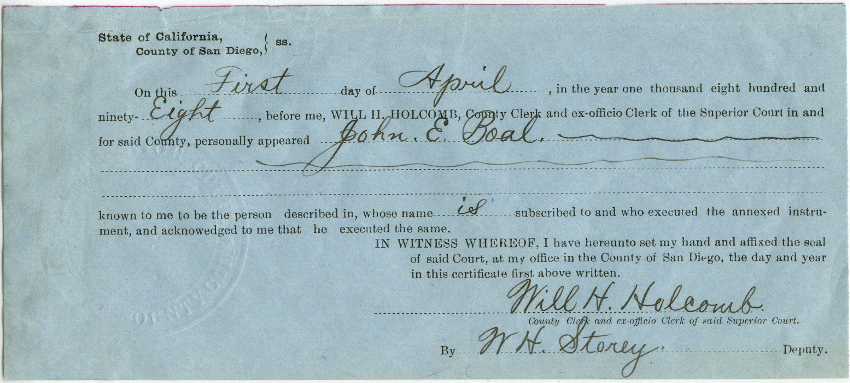 State of California,
County of San Diego, } ss.
On this First day of April, in the year one thousand eight hundred and
ninety-Eight, before me, WILL H. HOLCOMB, County Clerk and ex-officio Clerk of the Superior Court in and
for said County, personally appeared John. E. Boal.
known to me to be the person described in, whose name is subscribed to and who executed the annexed instru-
ment, and acknowedged to me that he executed the same.
IN WITNESS WHEREOF, I have hereunto set my hand and affixed the seal
of said Court, at my office in the County of San Diego, the day and year
in this certificate first above written.
Will H. Holcomb.
County Clerk and ex-officio Clerk of said Superior Court.
By W H. Storey. Deputy.